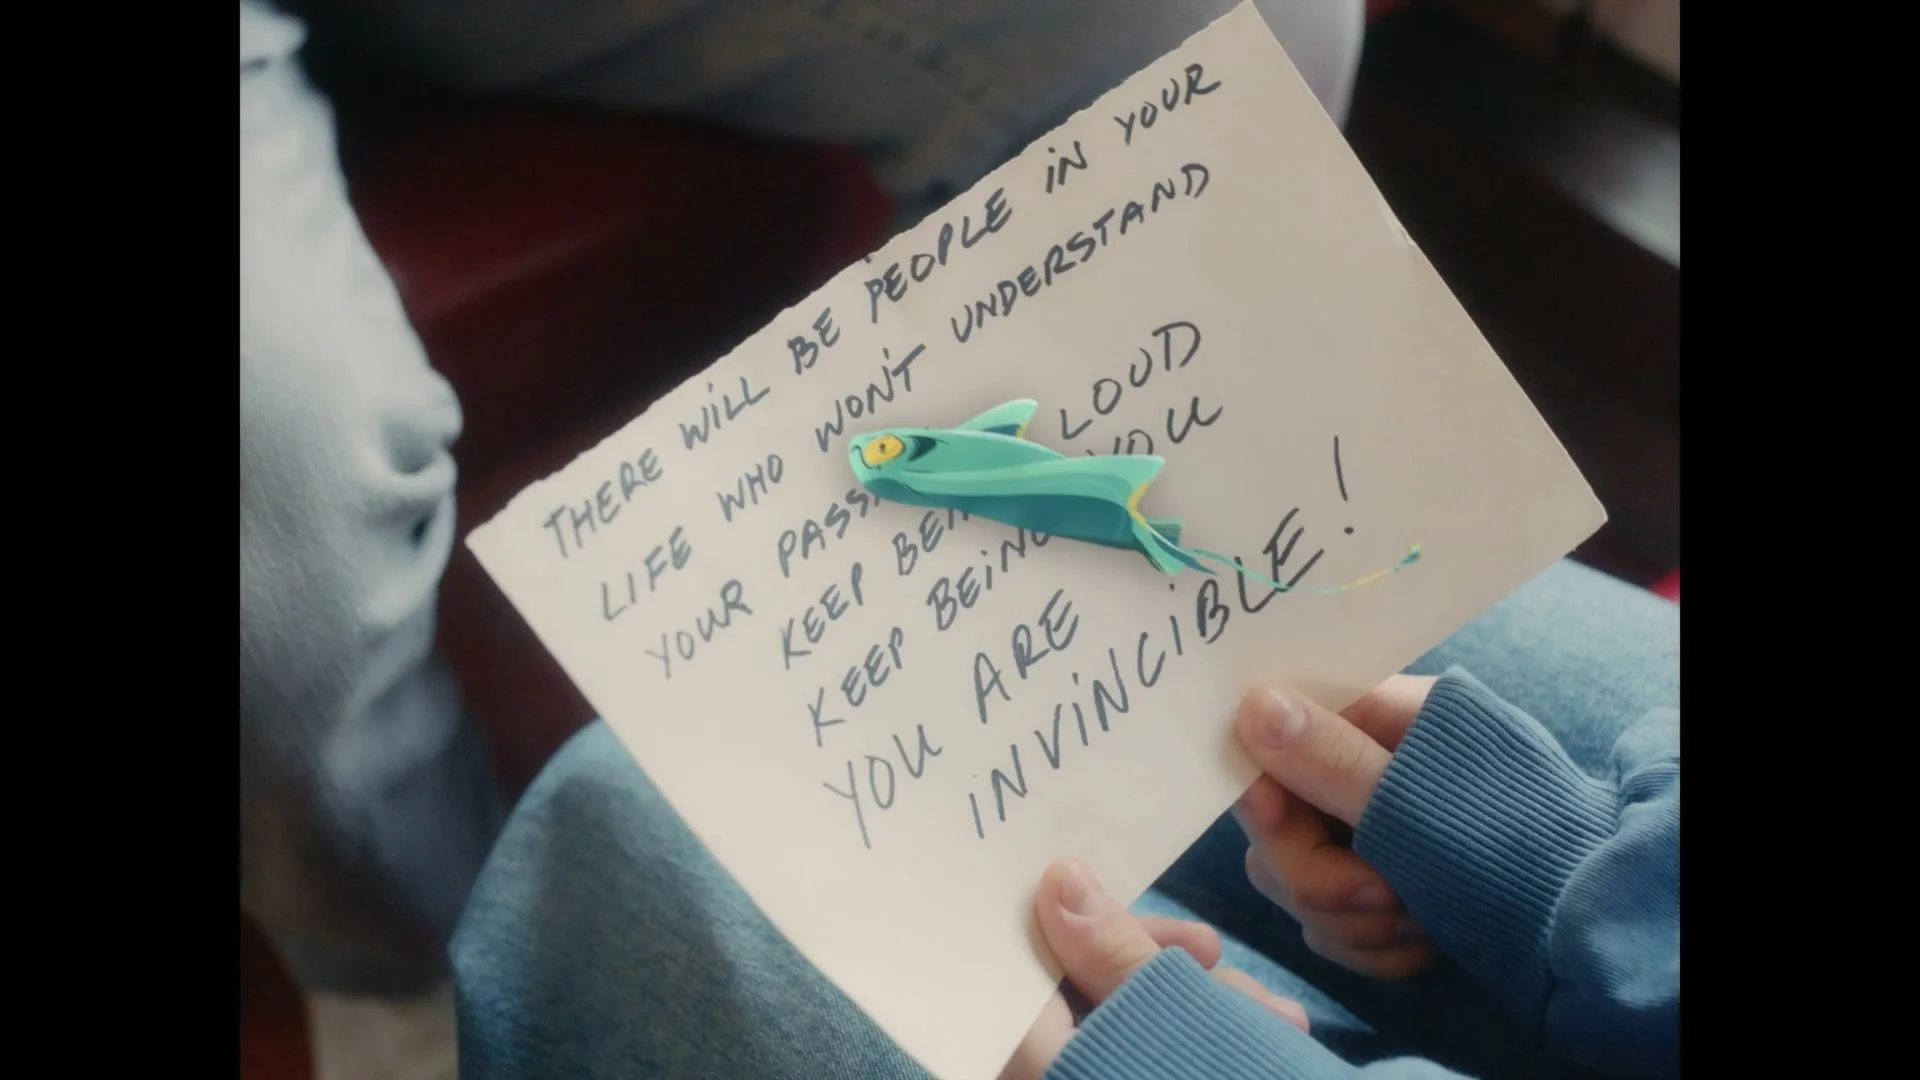 THERE WiLL BE PEOPLE iN YOUR
LIFE WHO WON'T UNDERSTAND
YOUR LOUD
KEEP YOU
KEEP BEiNG
YOU ARE
iNViNCiBLE!